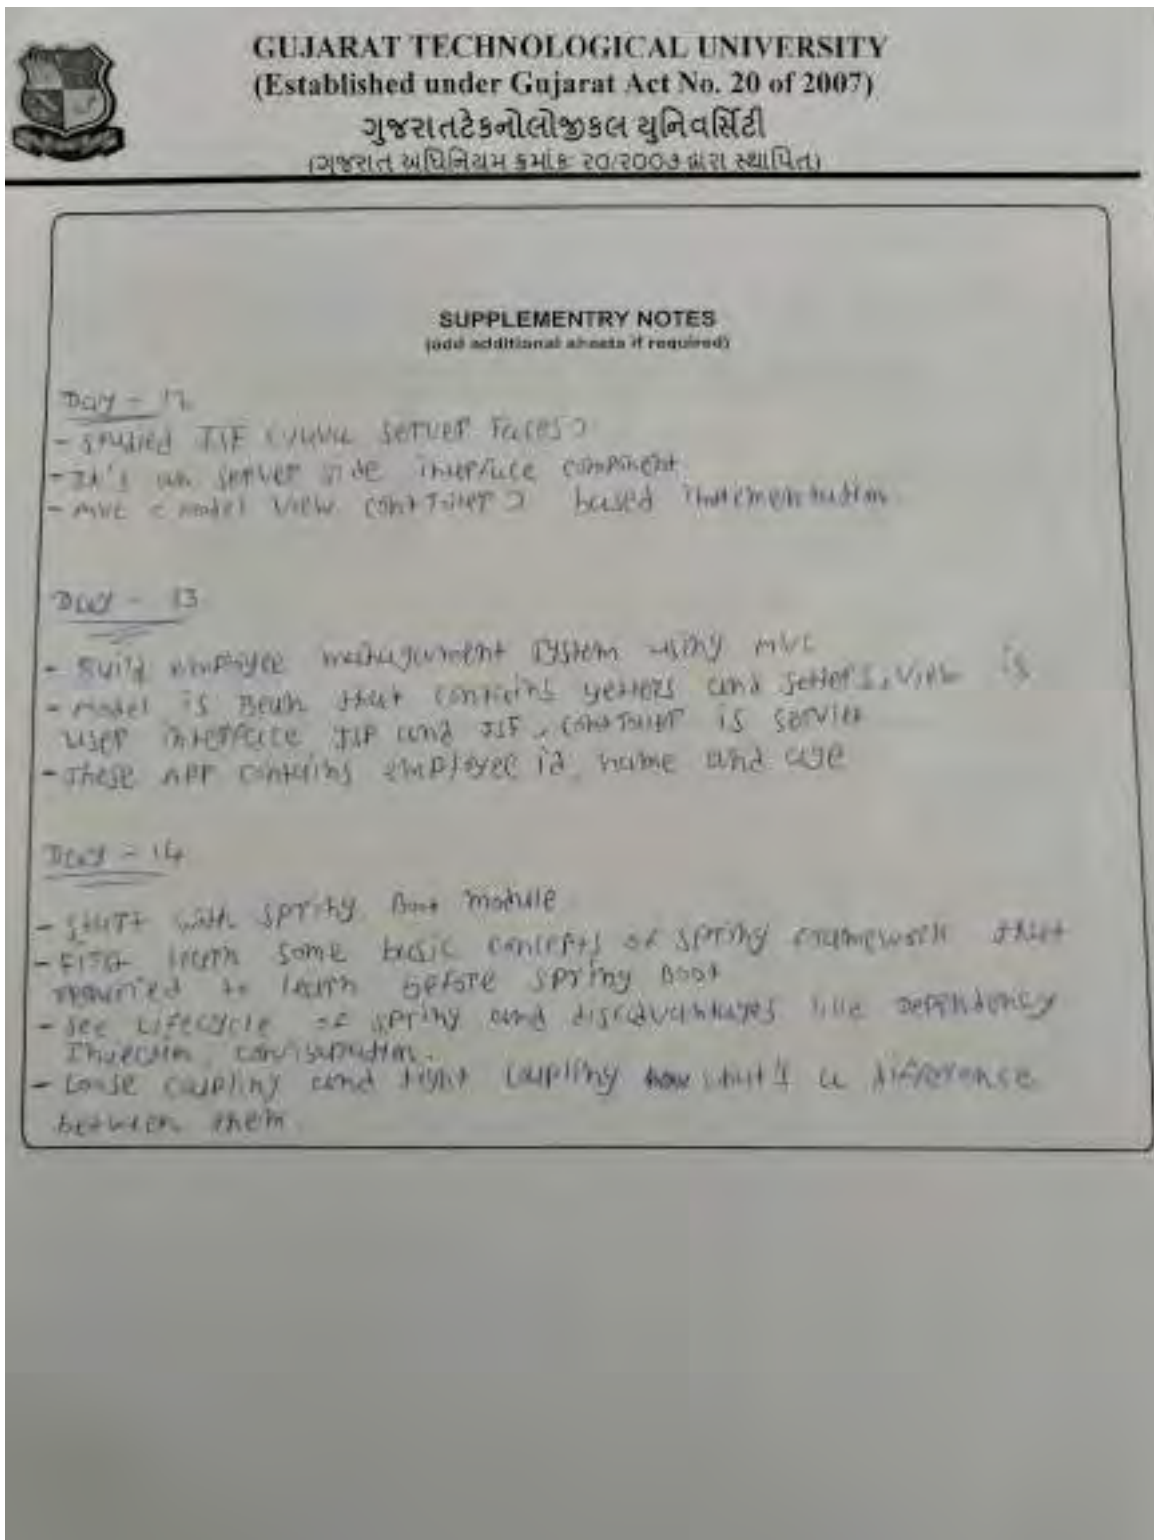 GUJARAT TECHNOLOGICAL UNIVERSITY
(Established under Gujarat Act No. 20 of 2007)
ગુજરાતટેકનોલોજીકલ યુનિવર્સિટી
(ગુજરાત અધિનિયમ ક્રમાંક: ૨૦/૨૦૦૭ દ્વારા સ્થાપિત)
SUPPLEMENTRY NOTES
(add additional sheets if required)
Day - 12
- Studied JSF (Java Server Faces)
- It's an server side interface component
- MVC (Model View Controller) based implementation
Day - 13
- Build employee management system using MVC
- Model is Bean that contains getters and setters, View is
user interface JSP and JSF, Controller is servlet
- These APP contains employee id, name and age
Day - 14
- Start with Spring Boot module
- First learn some basic concepts of spring framework that
required to learn before spring Boot
- See Lifecycle of spring and disadvantages like Dependency
Injection, configuration.
- Loose coupling and tight coupling what's a difference
between them.